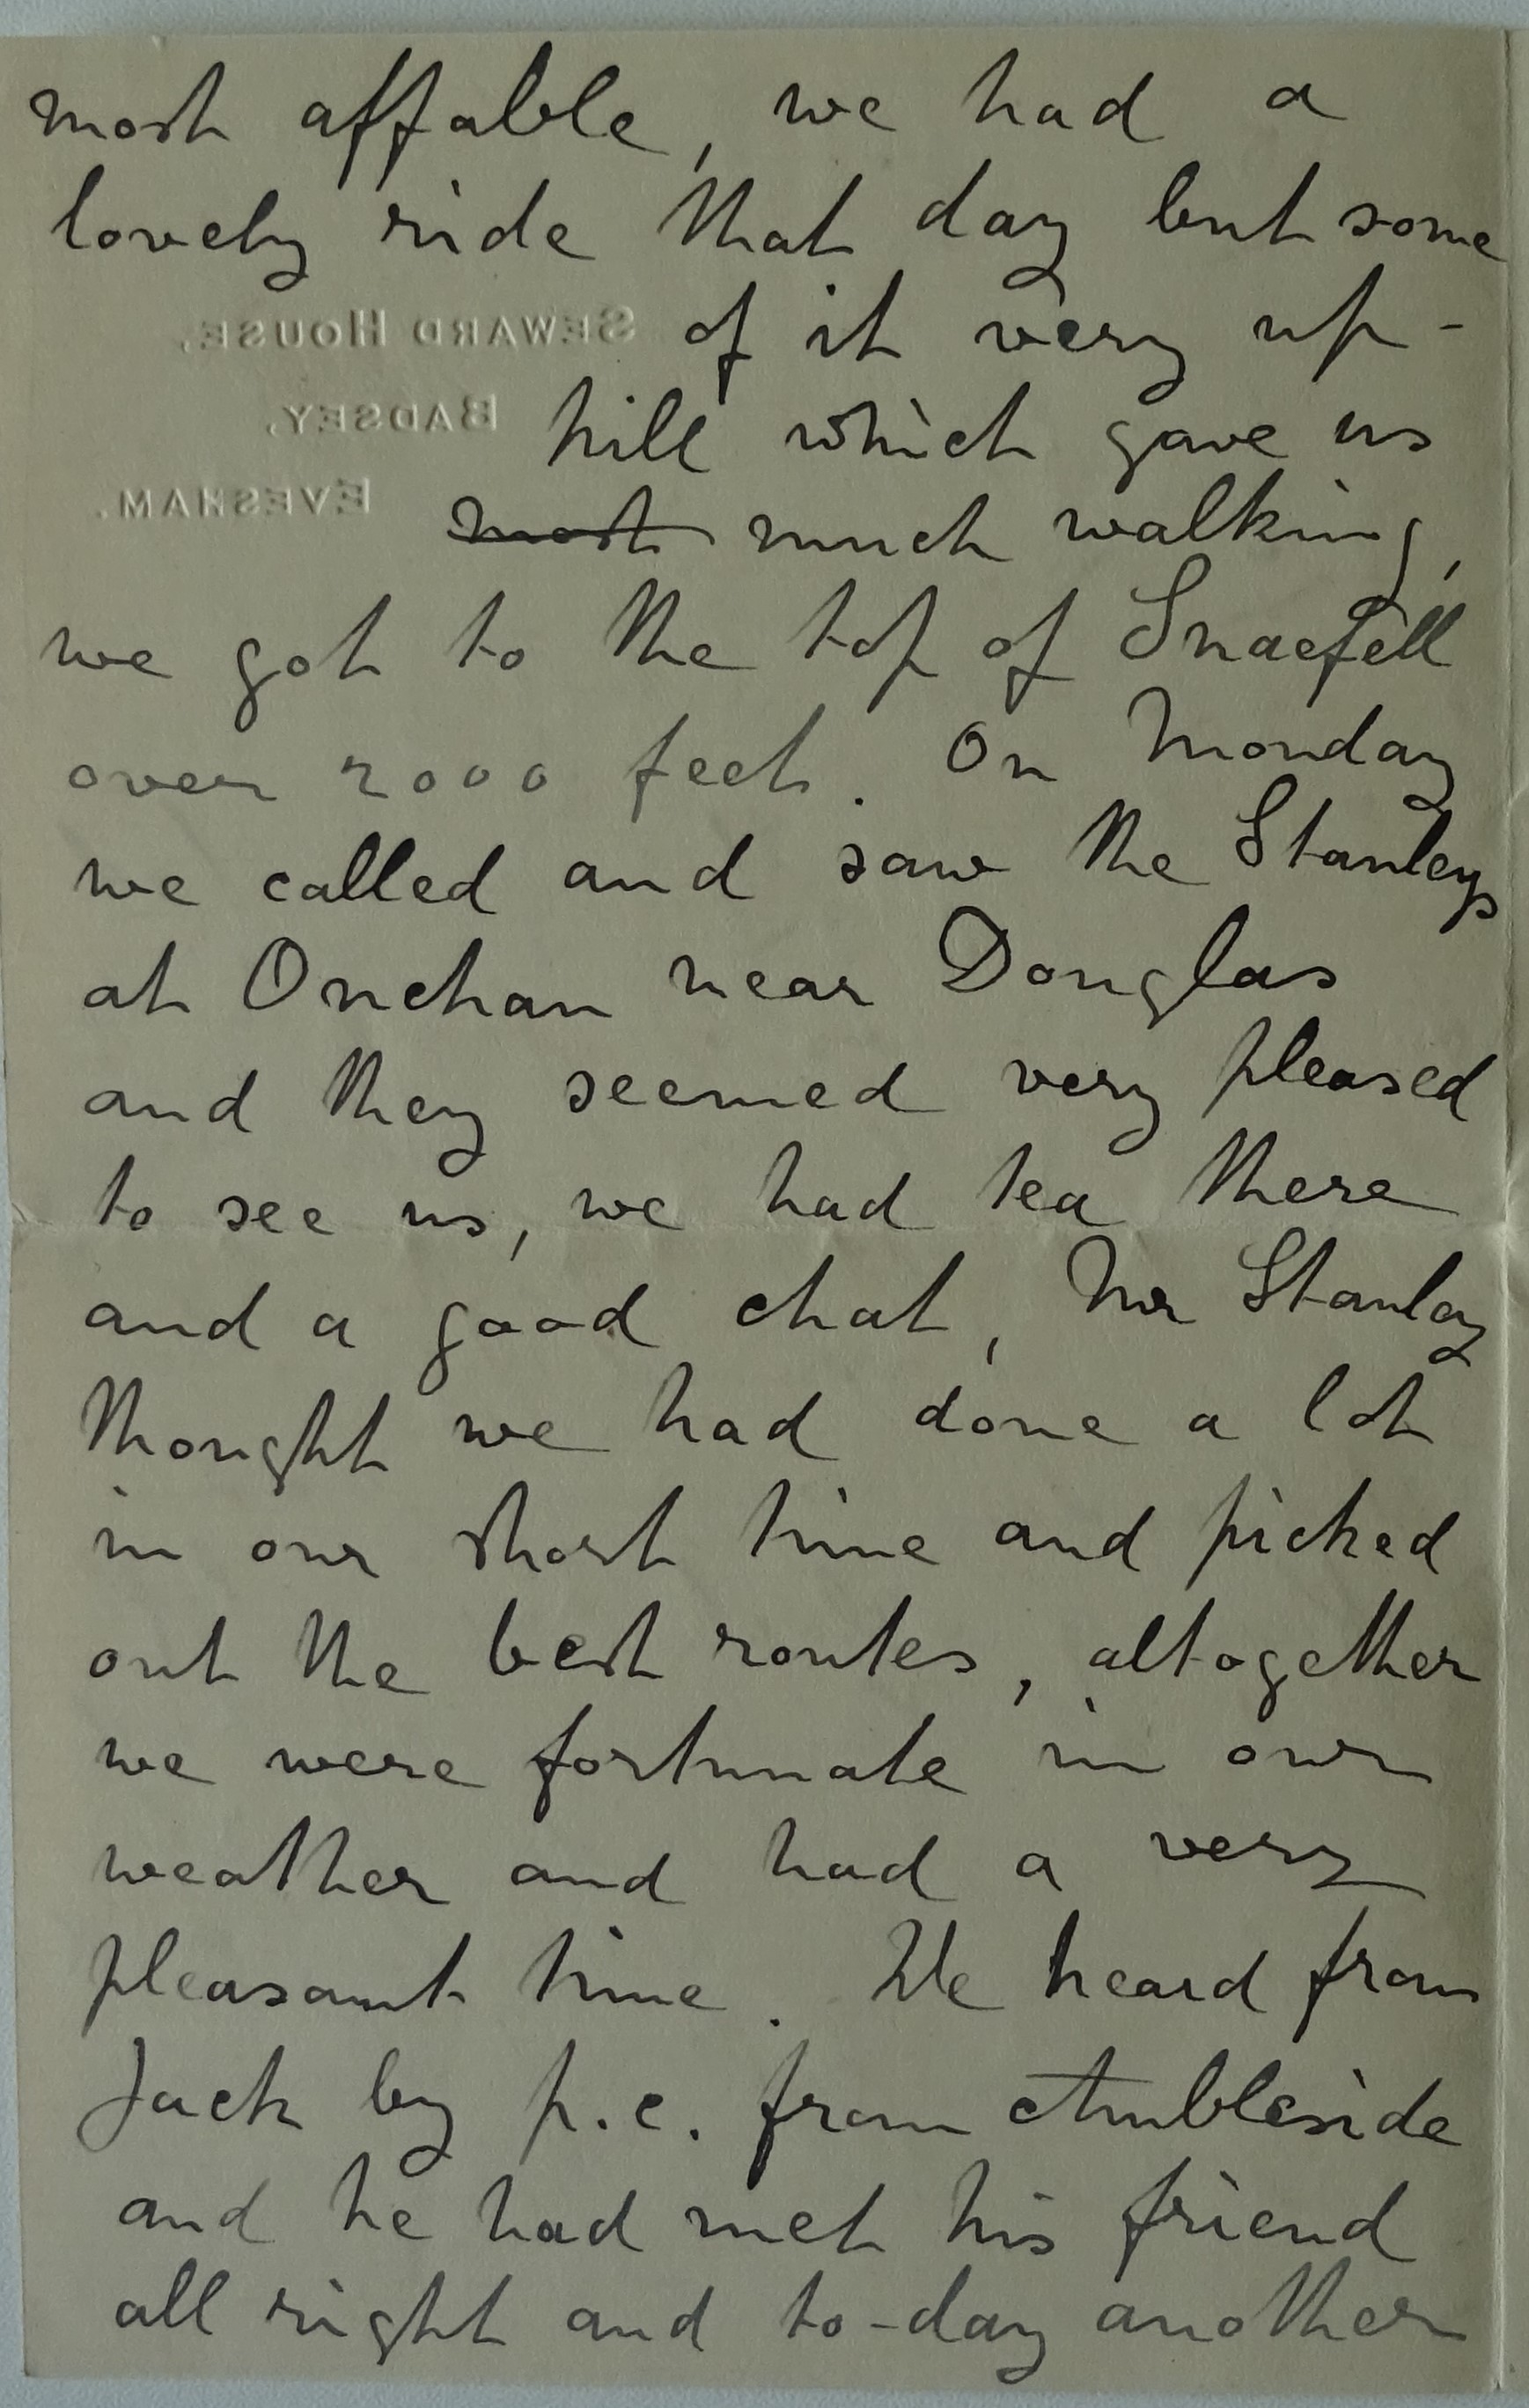 most affable, we had a
lovely ride that day but some
SEWARD HOUSE, of it very up-
BADSEY, hill which gave us
EVESHAM. most much walking,
we got to the top of Snaefell
over 2000 feet. On Monday
we called and saw the Stanleys
at Onchan near Douglas
and they seemed very pleased
to see us, we had tea there
and a good chat, Mr Stanley
thought we had done a lot
in our short time and picked
out the best routes, altogether
we were fortunate in our
weather and had a very
pleasant time. We heard from
Jack by p.c. from Ambleside
and he had met his friend
all right and to-day another